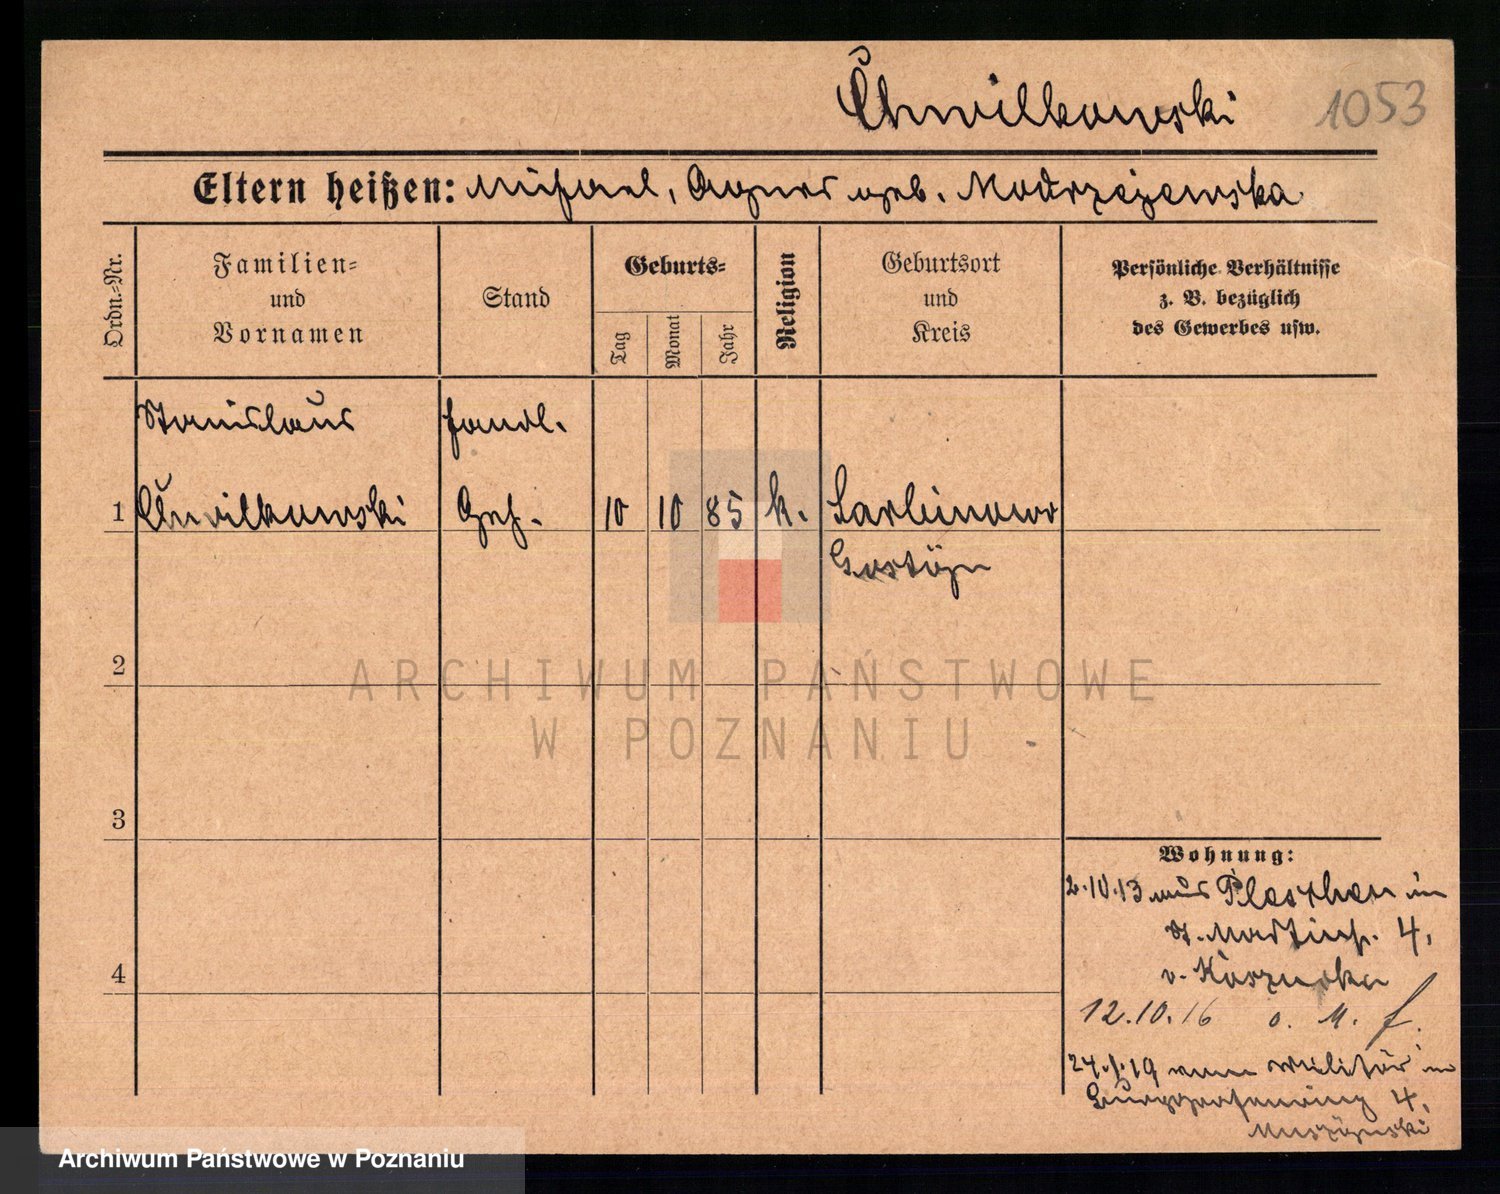 Chwilkowski 1053
Eltern heißen: Michael, Agnes geb. Modrzejewska
Ordn.-Nr.
Familien-
und
Vornamen
Stand
Geburts-
Tag
Monat
Jahr
Religion
Geburtsort
und
Kreis
Persönliche Verhältnisse
z. B. bezüglich
des Gewerbes usw.
Stanislaus Handl.
1 Chwilkowski Geh. 10 10 85 k. Sarbinowo
Gostyn
2
ARCHIWUM PAŃSTWOWE
W POZNANIU
3
Wohnung:
2.10.13 aus Pleschen in
St. Martinstr. 4,
v. Koszucka
4
12.10.16 o. M. f.
24.1.19 vom Militär in
4,
Archiwum Państwowe w Poznaniu